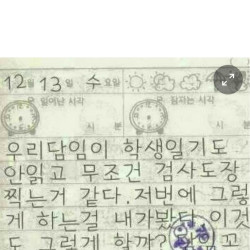 12월 13일 수요일
일어난 시각 잠자는 시각
시 분 시 분
우리담임이 학생일기도
안읽고 무조건 검사도장
찍는거 같다.저번에 그렇
게 하는걸 내가봤다 이거
도 그렇게 할까?